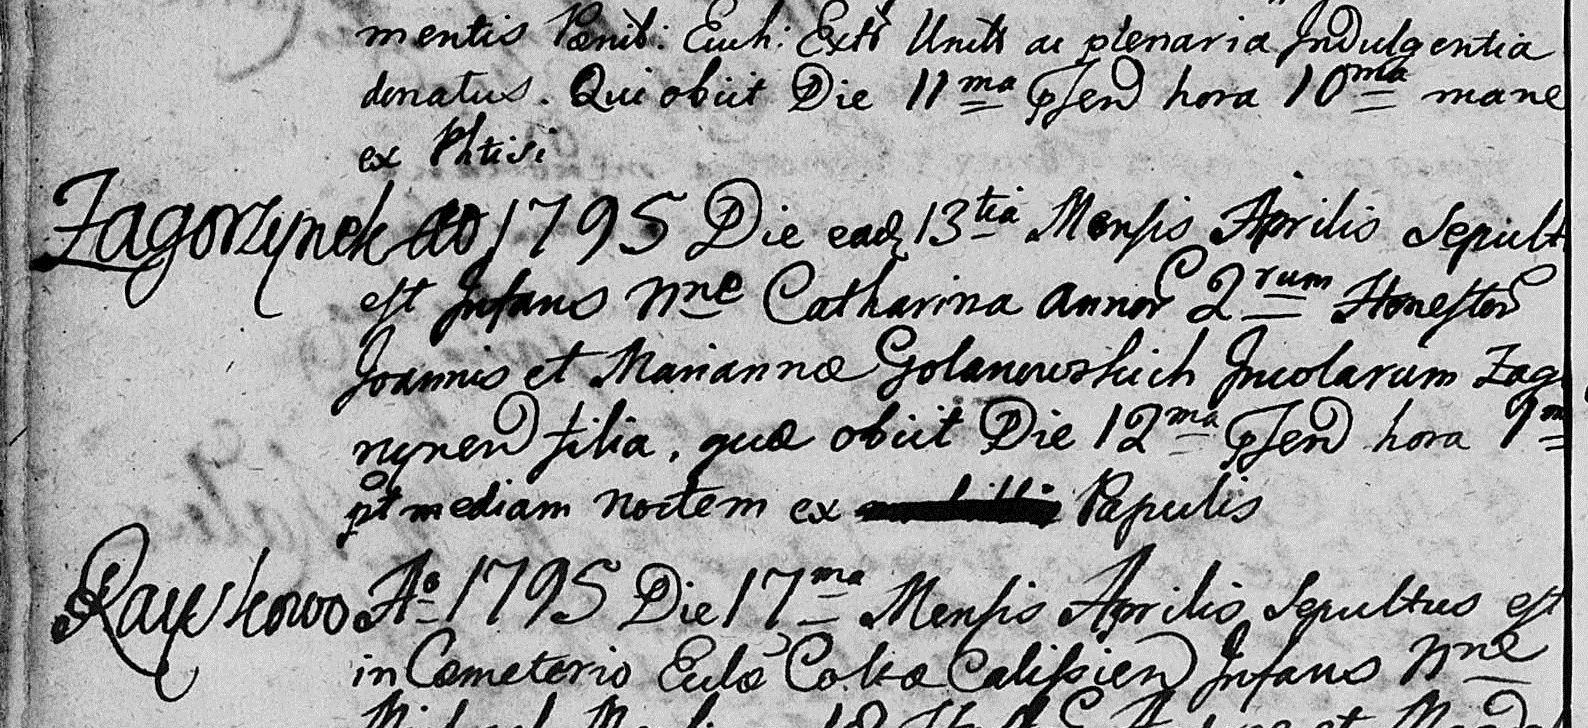 mentis Pœnit: Euh: Extr Unitt ac plenaria Indulgentia
donatus. Qui obiit Die 11ma psen hora 10ma mane
ex Phtisi
Zagorzynek Ao 1795 Die ead 13tia Mensis Aprilis Sepult
est Infans nne Catharina annor 2rum Honestor
Joannis et Mariannæ Golanowskich Incolarum Zag
nynen filia, quæ obiit Die 12ma psen hora 1m
pt mediam noctem ex Papulis
Ao 1795 Die 17ma Mensis Aprilis Sepultus est
in Cœmeterio Eccl&aelig; Colt&aelig; Calissien Infans nne